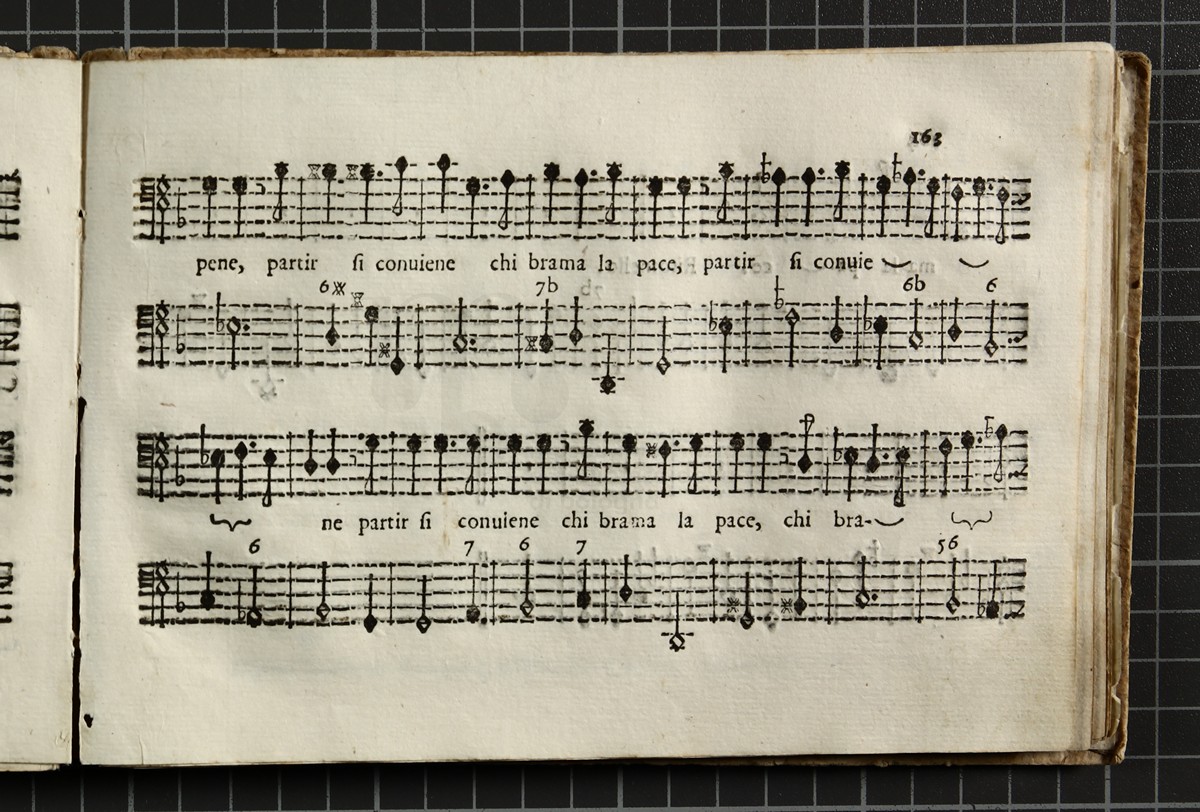 163
pene, partir ſi conuiene chi brama la pace, partir ſi conuie
6 7b 6b 6
ne partir ſi conuiene chi brama la pace, chi bra-
6 7 6 7 56